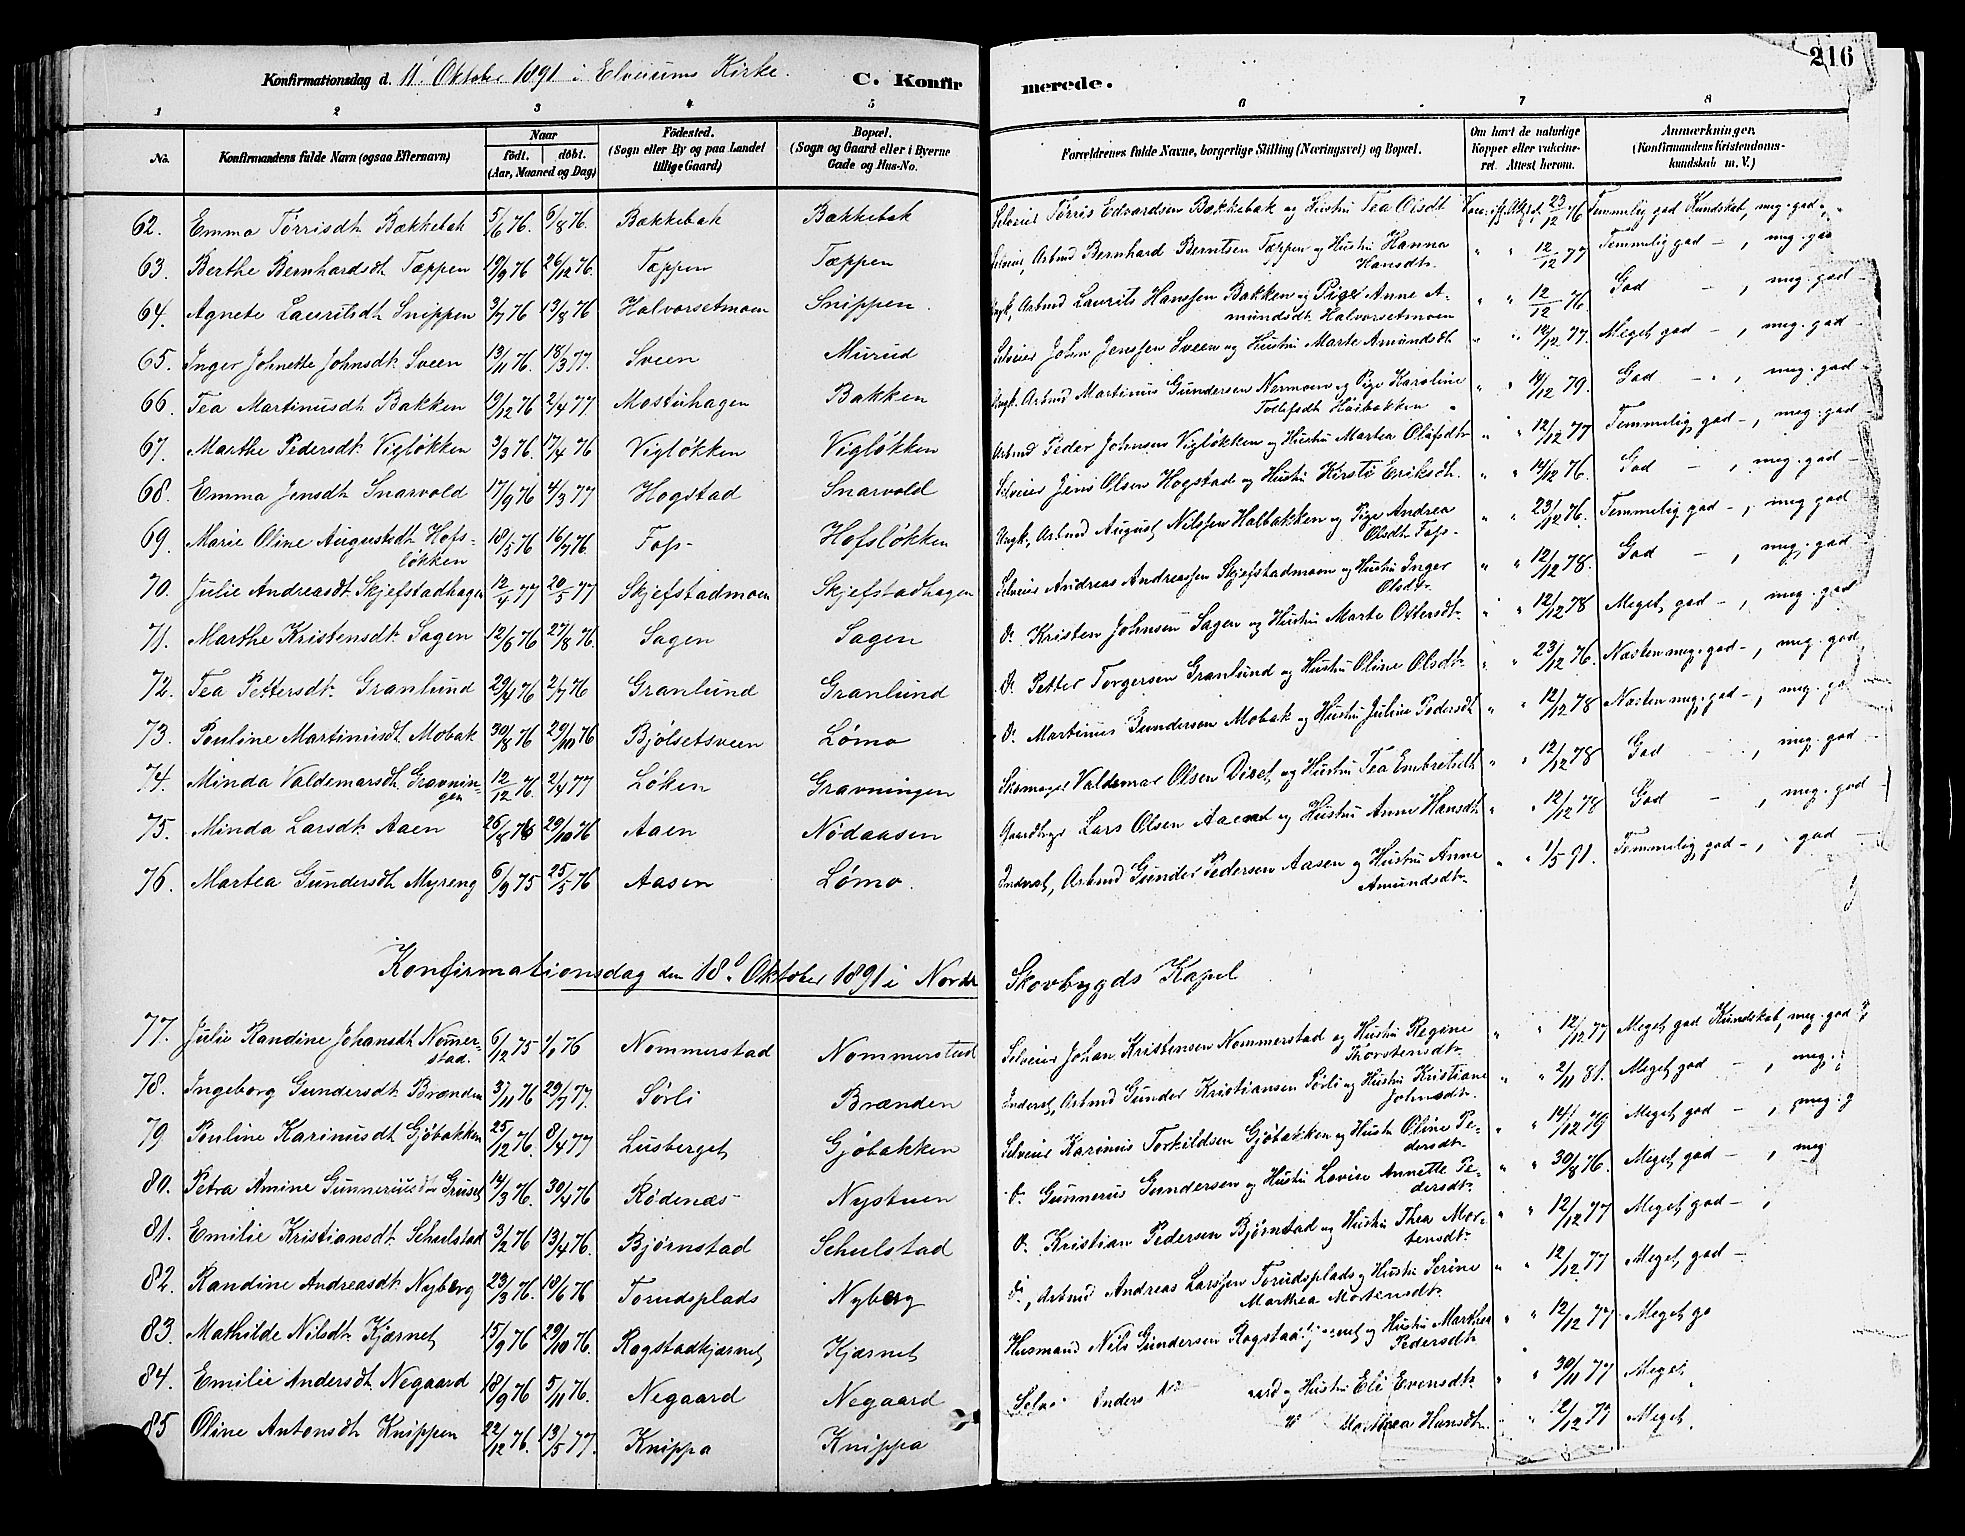 216
Konfirmationsdag d. 11' Oktober 1891 i Elverums Kirke. C. Konfirmerede.
1 2 3 4 5 6 7 8
No. Konfirmandens fulde Navn (ogsaa Efternavn) Naar født. døbt. (Aar, Maaned og Dag) Fødested. (Sogn eller By og paa Landet tillige Gaard) Bopæl. (Sogn og Gaard eller i Byerne Gade og Hus-No. Forældrenes fulde Navne, borgerlige Stilling (Næringsvei) og Bopæl. Om havt de naturlige Kopper eller vakcineret. Attest herom. Anmærkninger. (Konfirmandens Kristendomskundskab m. V.)
62. Emma Tørrisdt. Bækkebak 5/6 76. 6/8 76. Bækkebak Bækkebak Selveier Tørris Edvardsen Bækkebak og Hustru Tea Olsdt 23/12 76 Temmelig god Kundskab, meg. god
63. Berthe Bernhardsdt Tæppen 19/9 76 26/12 76. Tæppen Tæppen Selveier, Arbmd Bernhard Berntsen Tæppen og Hustru Hanna Hansdt. " " 12/12 77 Temmelig god – , meg. god
64. Agnete Lauritsdt Snippen 3/7 76 13/8 76 Halvorsetmoen Snippen. Ungk., Arbmd Laurits Hanssen Bakken og Pige Anne Amundsdt. Halvorsetmoen " " 12/12 76. God – , meg. god
65. Inger Johnette Johnsdt Sveen 13/11 76. 18/3 77. Sveen Murud Selveier John Jenssen Sveen og Hustru Marte Amundsdt " " 12/12 77. Meget god – , meg. god
66. Tea Martinusdt Bakken 19/12 76 2/4 77 Mostuhagen Bakken Ungk. Arbmd Martinus Gundersen Nermoen og Pige Karoline Tollefsdt Høibakken " " 14/12 79. God – , meg. god
67. Marthe Pedersdt. Vigløkken 3/3 76. 17/4 76 Vigløkken Vigløkken Arbmd Peder Johnsen Vigløkken og Hustru Martea Olafsdt " " 12/12 77 Temmelig god – , meg. god
68. Emma Jensdt. Snarvold 17/9 76 4/3 77 Hogstad Snarvold Selveier Jens Olsen Hogstad og Hustru Kirsti Eriksdt. " " 14/12 76. God – , meg. god
69. Marie Oline Augustsdt Hofsløkken 18/5 76 16/7 76. Fos- Hofsløkken Ungk., Arbmd August Nilssen Halbakken og Pige Andrea Olsdt. Fos- " " 23/12 76. Temmelig god – , meg god
70. Julie Andreasdt. Skjefstadhagen 12/4 77 20/5 77 Skjefstadmoen Skjefstadhagen Selveier Andreas Andreassen Skjefstadmoen og Hustru Inger Olsdt. " " 12/12 78. God – , meg. god
71. Marthe Kristensdt. Sagen 12/6 76 27/8 76. Sagen Sagen Do. Kristen Johnsen Sagen og Hustru Marte Ottersdt. " " 12/12 78 Meget god – , meg. god
72. Tea Pettersdt. Granlund 29/4 76 2/7 76 Granlund Granlund Do. Petter Torgersen Granlund og Hustru Oline Olsdt. " " 23/12 76. Næsten meg. god – , meg. god
73. Pouline Martinusdt. Mobak 30/8 76 29/10 76 Bjølsetsveen Lømo Do. Martinus Gundersen Mobak og Hustru Juline Pedersdt " " 12/12 78 Næsten meg. god – , meg. go
74. Minda Valdemarsdt. Gravningen 12/12 76. 2/4 77 Løken Gravningen Skomager Valdemar Olsen Diset og Hustru Tea Embretsdt " " 12/12 78 God – , meg. god
75. Minda Larsdt. Aaen 26/8 76 29/10 76 Aaen Nødaasen Gaardbryr Lars Olsen Aaen og Hustru Anne Hansdt " " 12/12 78 God – , meg. god
76. Martea Gundersdt Myreng 6/9 75 25/5 76 Aasen Lømo. Inderst, Arbmd Gunder Pedersen Aasen og Hustru Anne Amundsdt. " " 1/5 91. Temmelig god – , god
Konfirmationsdag den 18d. Oktober 1891 i Nordre Skovbygds Kapel
77. Julie Randine Johansdt Nommerstad. 6/12 75 76 Nommerstad Nommerstad Selveier Johan Kristensen Nommerstad og Hustru Regine Thorstensdt. " " 12/12 77 Meget god Kundskab, meg. god
78. Ingeborg Gundersdt. Brænden 3/11 76 29/7 77. Sørli Brænden Inderst, Arbmd Gunder Kristiansen Sørli og Hustru Kristiane Johnsdt. " " 2/11 81. Meget god – , meg.
79 Pouline Karinusdt Gjøbakken 25/12 76. 8/4 77 Lusberget Gjøbakken Selveier Karinus Torkildsen Gjøbakken og Hustr. Oline Pedersdt. " " 14/12 79 Meget god – , meg. g
80. Petra Amine Gunneriusdt. Gruset 14/3 76. 30/4 76 Rødenæs- Nystuen Do. Gunnerus Gundersen og Hustru Lovise Annette Pedersdt. " " 30/8 76. Meget god – , meg
81. Emilie Kristiansdt Schulstad 3/2 76 13/4 76. Bjørnstad Schulstad Do. Kristian Pedersen Bjørnstad og Hustru Thea Mortensdt. " " 12/12 77 Meget god – ,
82. Randine Andreasdt. Nyberg 23/3 76. 18/6 76 Torudsplads Nyberg Do., Arbmd Andreas Larssen Torudsplads og Hustru Serine Marthea Mortensdt. " " 12/12 77 Meget god –
83. Mathilde Nilsdt. Kjærnet 15/9 76 29/10 76. Rogstadkjærnet Kjærnet Husmand Nils Gundersen Rogstad og Hustru Marthea Pedersdt. " " 12/12 77 Meget go
84. Emilie Andersdt. Negaard 18/9 76 5/11 76. Negaard Negaard Anders og Hustru Eli Evensdt. " " 30/11 77 Meget
85 Oline Antonsdt Knippen 22/12 76. 13/5 77. Knippa Knippa Hansdt. " " 12/12 77 Meget